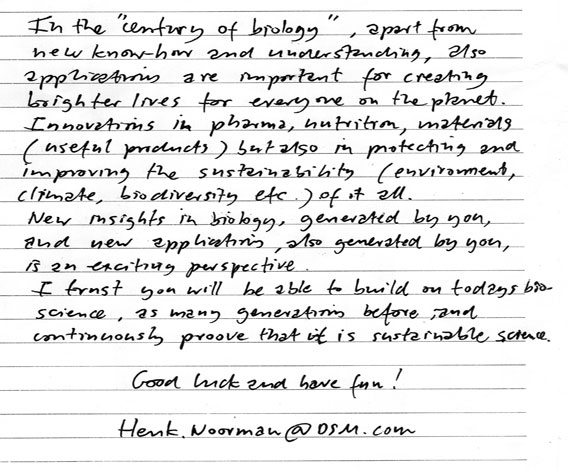 In the "century of biology", apart from
new know-how and understanding, also
applications are important for creating
brighter lives for everyone on the planet.
Innovations in pharma, nutrition, materials
(useful products) but also in protecting and
improving the sustainability (environment,
climate, biodiversity etc.) of it all.
New insights in biology, generated by you,
and new application, also generated by you,
is an exciting perspective.
I trust you will be able to build on todays bio-
science, as many generations before, and
continuously proove that it is sustainable science.
Good luck and have fun!
Henk.Noorman@DSM.com